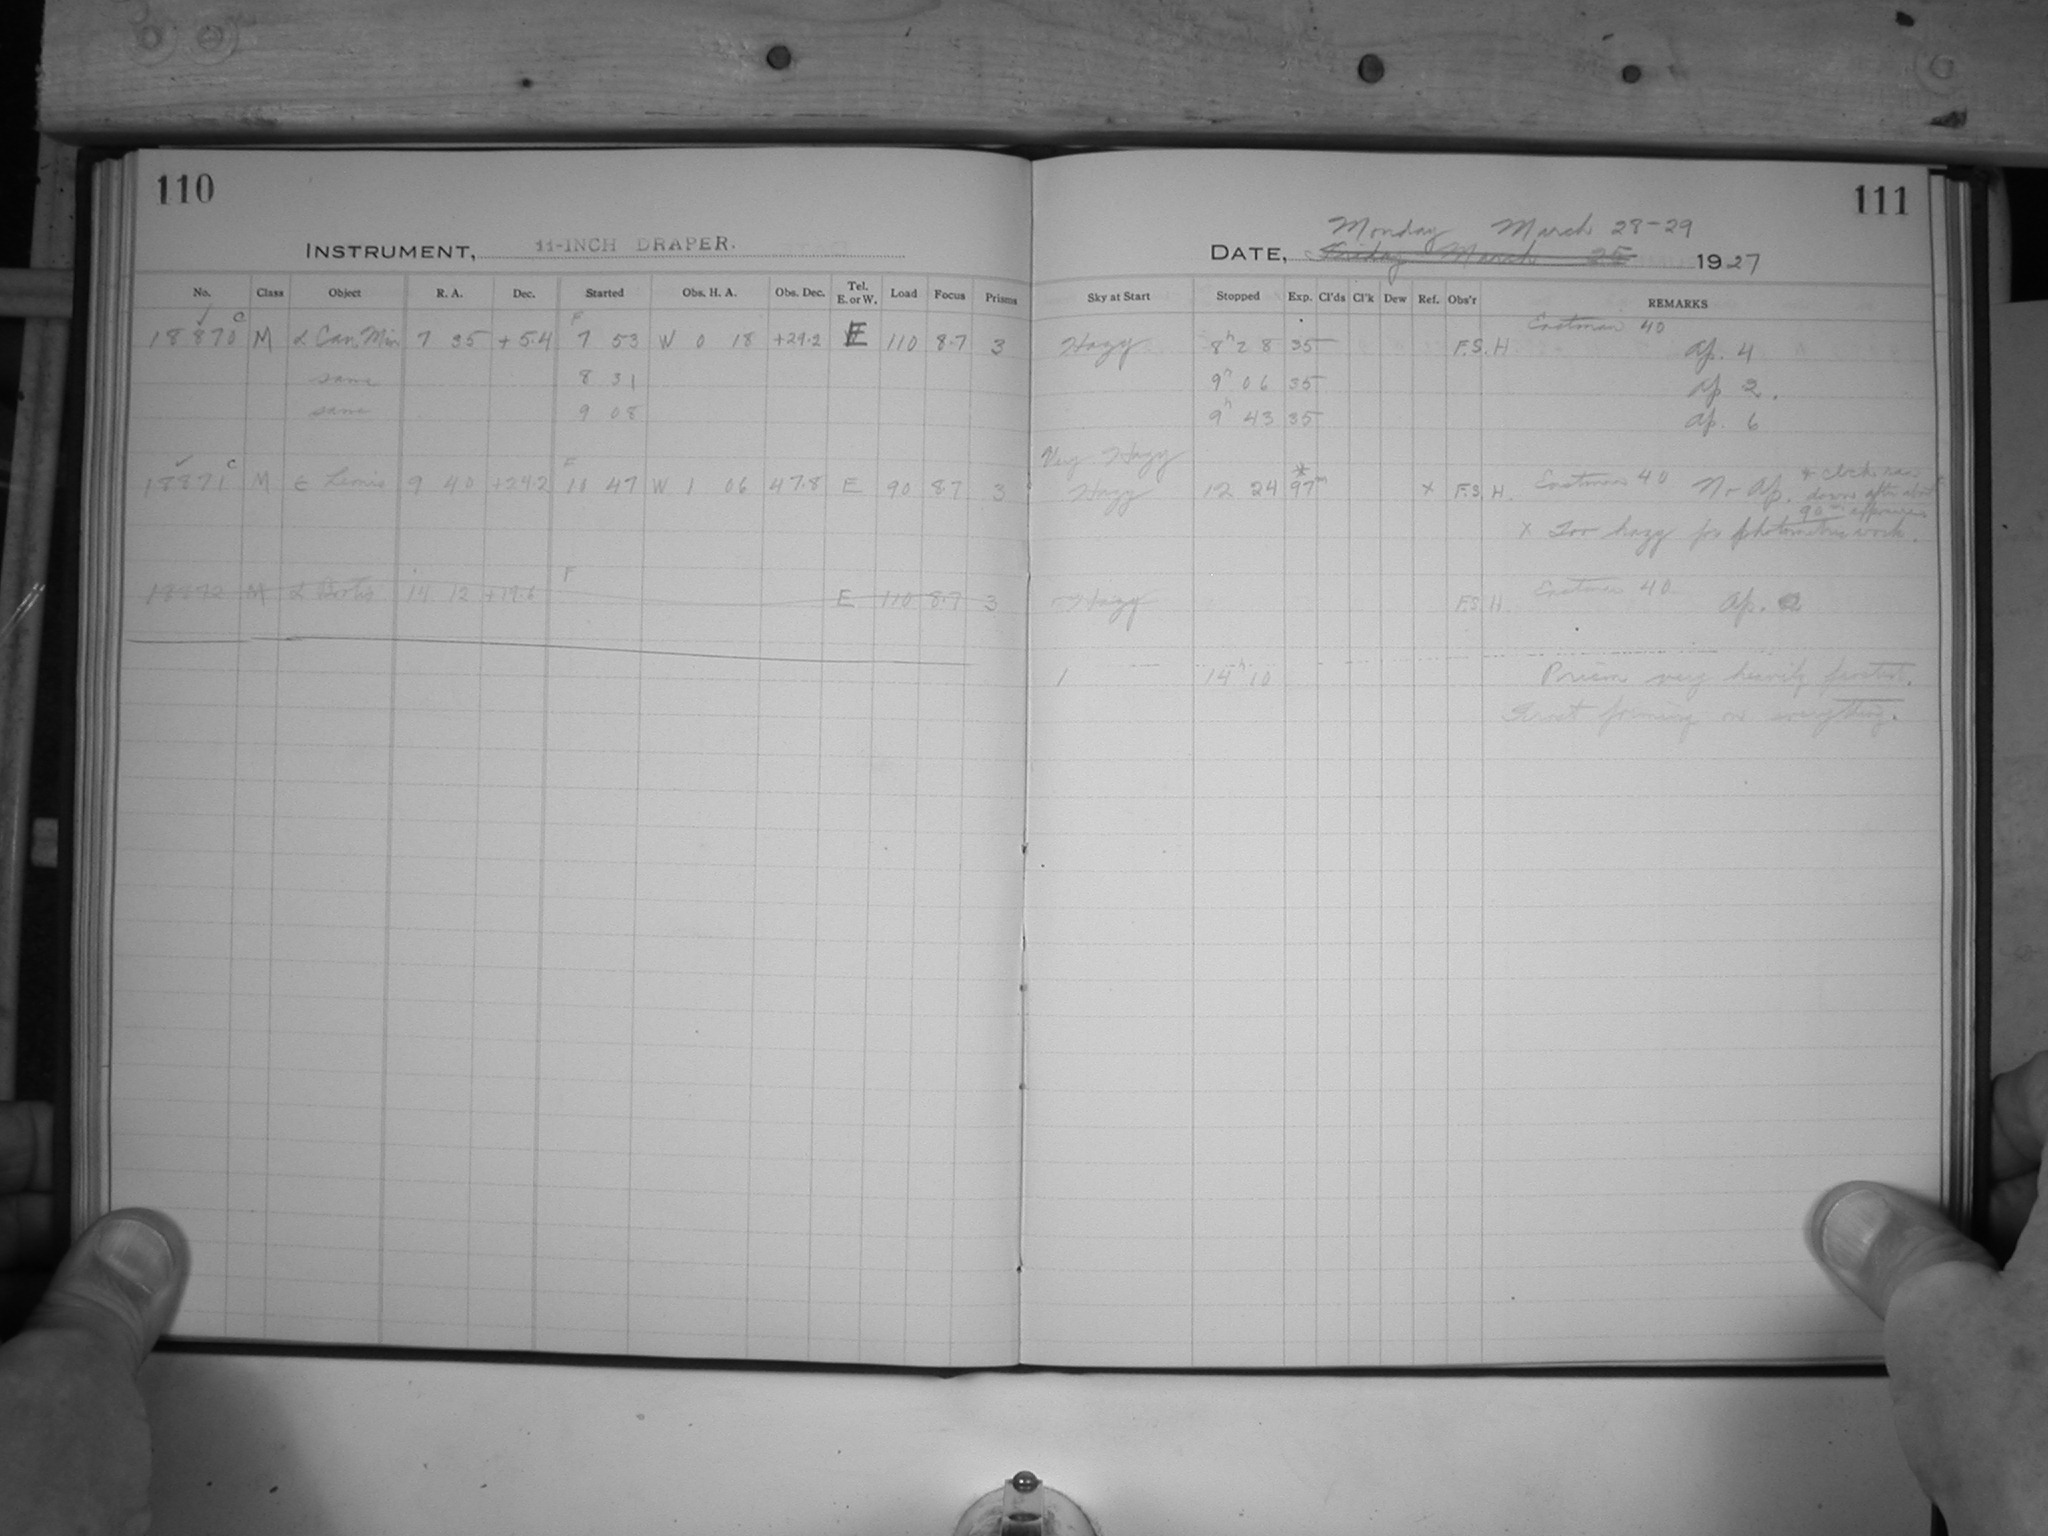 110
INSTRUMENT, 11-INCH DRAPER.
No. Class Object R. A. Dec. Started Obs. H. A. Obs. Dec. Tel. E. or W. Load Focus Prisms
18870 c M α Can. Min 7 35 +5.4 F 7 53 W 0 18 +29.2 E 110 8.7 3
same 8 31
same 9 08
18871 c M ε Leonis 9 40 +24.2 F 10 47 W 1 06 47.8 E 90 8.7 3
18872 M α Bootis 14 12 +19.6 F E 110 8.7 3
111
Monday March 28-29
DATE, Friday March 25 1927
Sky at Start Stopped Exp. Cl'ds Cl'k Dew Ref. Obs'r REMARKS
Eastman 40
Hazy 8h 28 35 F.S.H Ap. 4
9h 06 35 Ap 2.
9h 43 35 Ap. 6
Very Hazy
Hazy 12 24 97m * x F.S.H. Eastman 40 No Ap. * clock ran
down after about
90m exposure
x Too hazy for photometric work.
Hazy F.S.H. Eastman 40 Ap.
1 14h 10 Prism very heavily frosted.
Frost forming on everything.